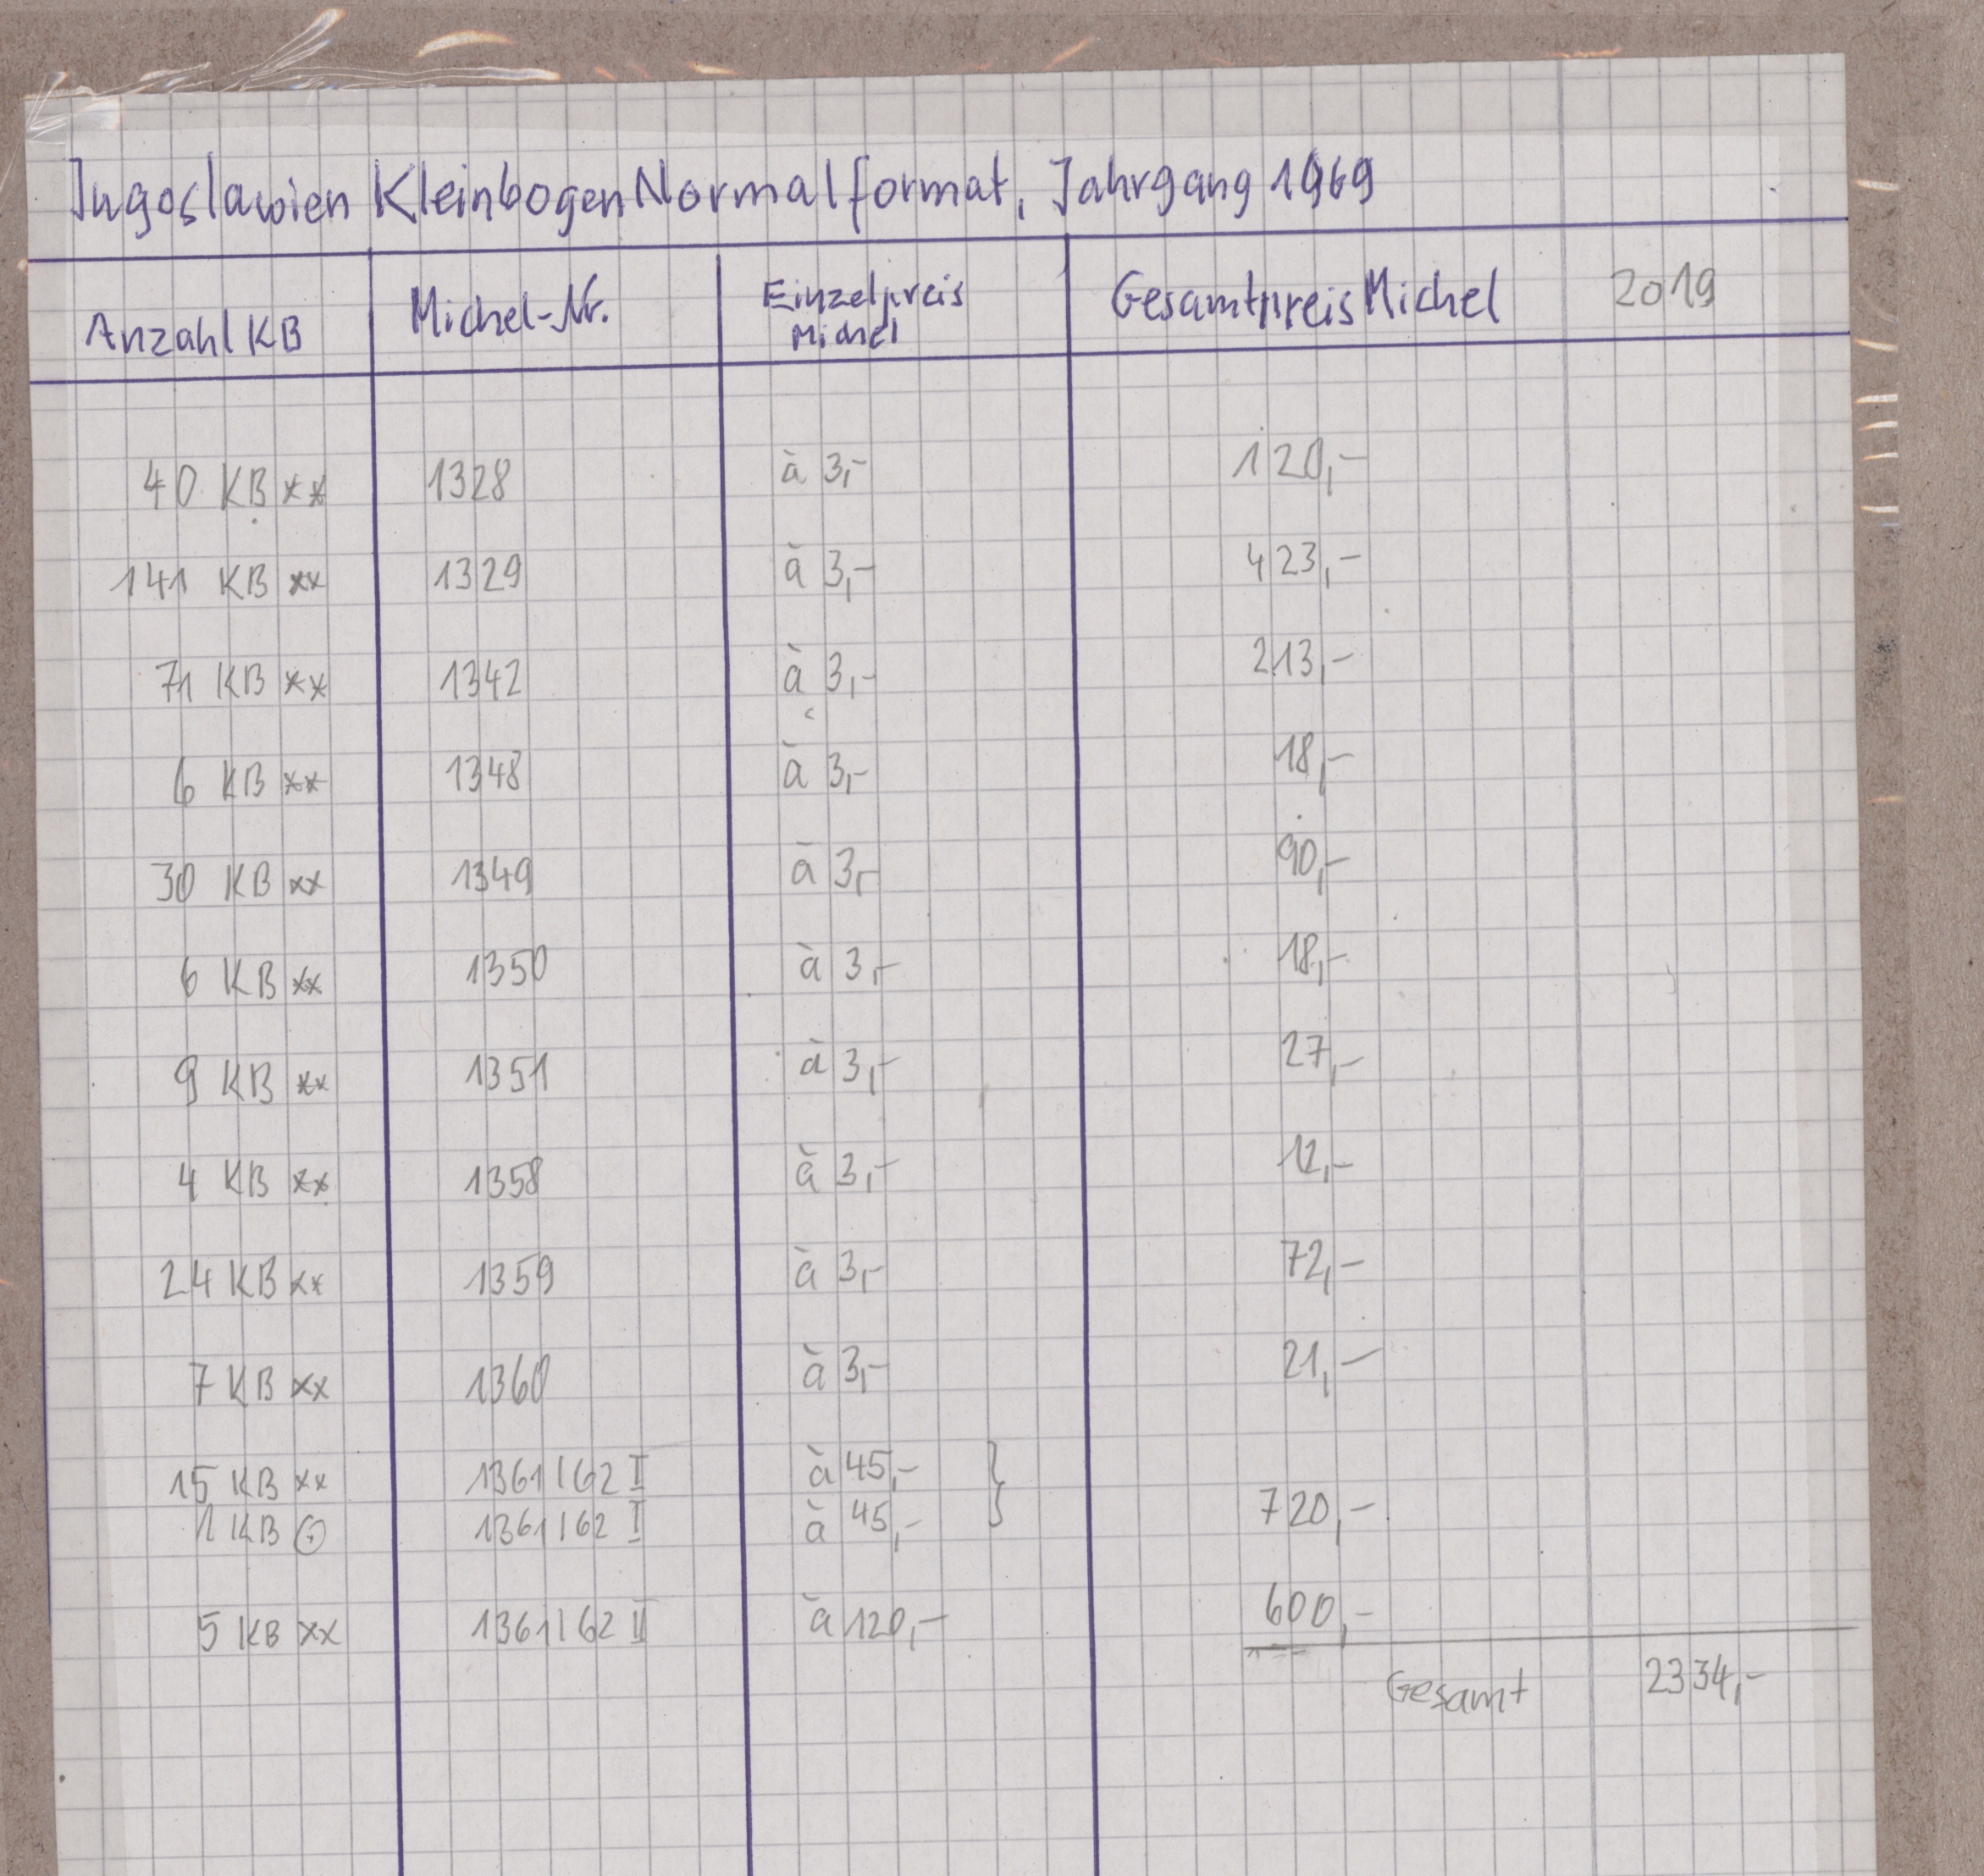 Jugoslawien Kleinbogen Normalformat, Jahrgang 1969
Anzahl KB Michel-Nr. Einzelpreis Michel Gesamtpreis Michel 2019
40 KB ** 1328 à 3,- 120,-
141 KB ** 1329 à 3,- 423,-
71 KB ** 1342 à 3,- 213,-
6 KB ** 1348 à 3,- 18,-
30 KB ** 1349 à 3,- 90,-
6 KB ** 1350 à 3,- 18,-
9 KB ** 1351 à 3,- 27,-
4 KB ** 1358 à 3,- 12,-
24 KB ** 1359 à 3,- 72,-
7 KB ** 1360 à 3,- 21,-
15 KB ** 1361/62 I à 45,-
1 KB ⊙ 1361/62 I à 45,- 720,-
5 KB ** 1361/62 II à 120,- 600,-
Gesamt 2334,-